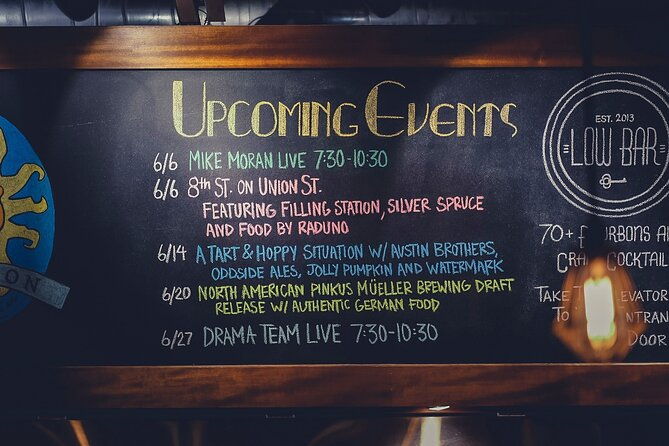 UPCOMING EVENTS
6/6 MIKE MORAN LIVE 7:30-10:30
6/6 8th ST. ON UNION ST.
FEATURING FILLING STATION, SILVER SPRUCE
AND FOOD BY RADUNO
6/14 A TART & HOPPY SITUATION W/ AUSTIN BROTHERS,
ODDSIDE ALES, JOLLY PUMPKIN AND WATERMARK
6/20 NORTH AMERICAN PINKUS MÜELLER BREWING DRAFT
RELEASE W/ AUTHENTIC GERMAN FOOD
6/27 DRAMA TEAM LIVE 7:30-10:30
EST. 2013
LOW BAR
70+
TAKE
TO
ON